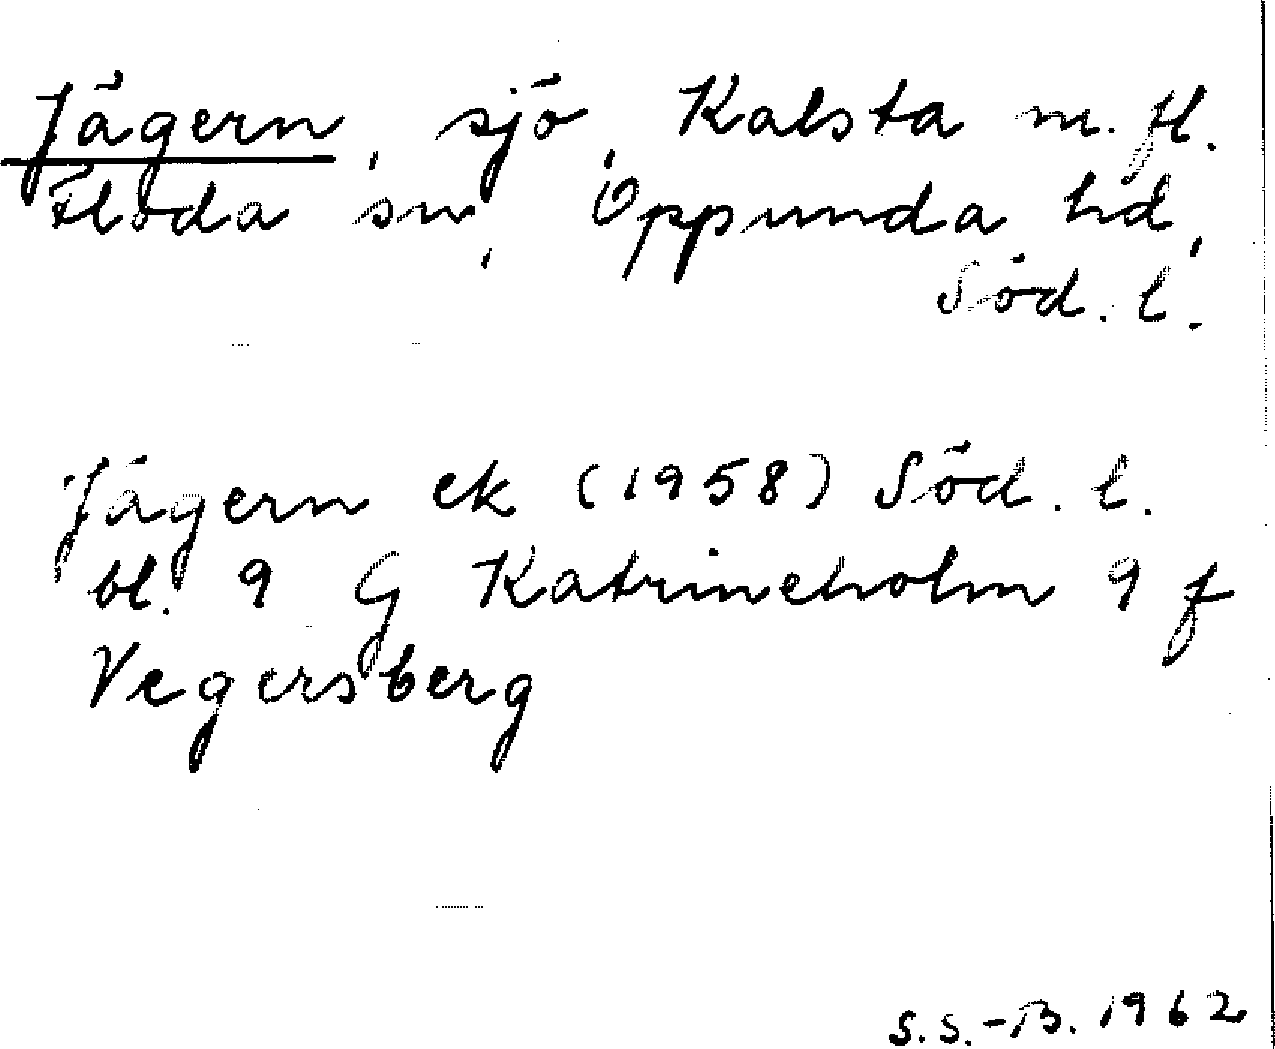 Jägern, sjö, Kalsta m. fl.
Floda sn, Oppunda hd,
Söd. l.
Jägern ek (1958) Söd. l.
bl. 9 G Katrineholm 9 f
Vegersberg
S. S.-B. 1962